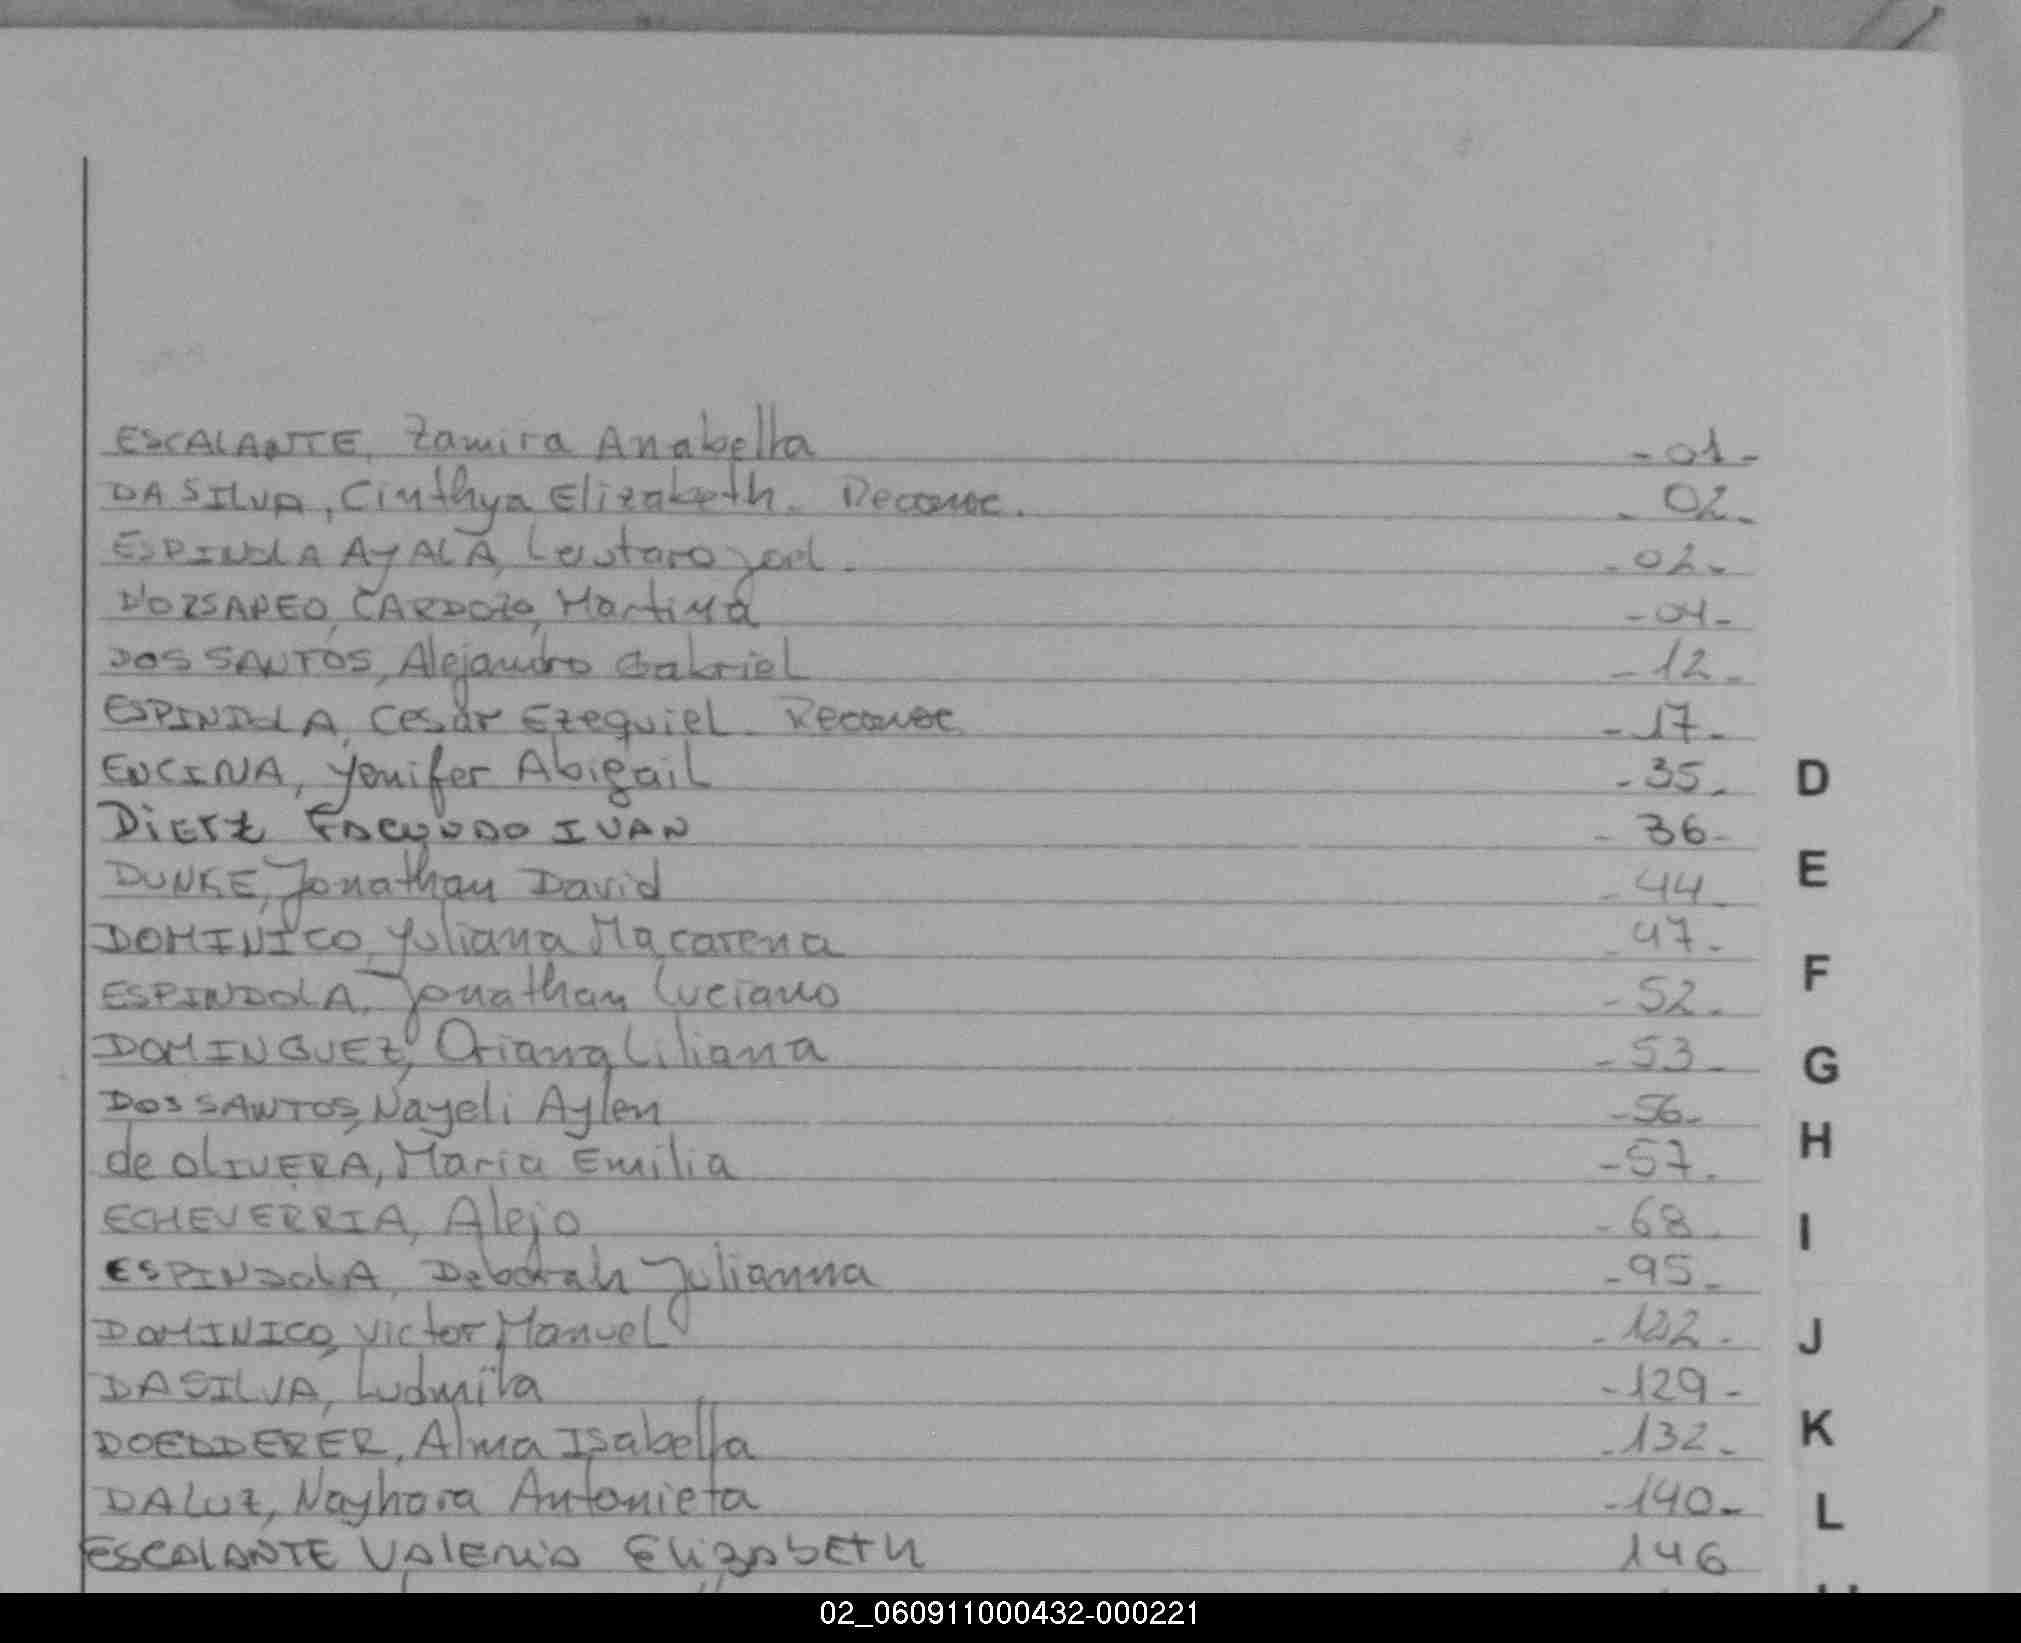 ESCALANTE, Zamira Anabella -01-
DA SILVA, Cinthya Elizabeth. Reconoc. - 02-
ESPINDLA AYALA, Leutaro Joel. -02-
D'OZSAPEO, CARDOZO, Martina -04-
DOS SANTOS, Alejandro Gabriel -12-
ESPINDOLA, Cesar Ezequiel. Reconoc -17-
ENCINA, Yenifer Abigail -35-
D
DiETz FACUNDO IVAN - 36-
E
DUNKE, Jonathan David -44-
DOMINICO, Yuliana Macarena -47-
F
ESPINDOLA, Jonathan Luciano -52-
DOMINGUEZ, Oriana Liliana -53-
G
DOS SANTOS, Nayeli Aylen -56-
H
de OLIVERA, Maria Emilia -57-
ECHEVERRIA, Alejo -68-
I
ESPINDOLA, Deborah Julianna -95-
DOMINICO, Victor Manuel -122-
J
DA SILVA, Ludmila -129-
K
DOEDDERER, Alma Isabella -132-
DA LUZ, Nayhara Antonieta -140-
L
ESCALANTE VALERIA ElizABETH 146
02_060911000432-000221